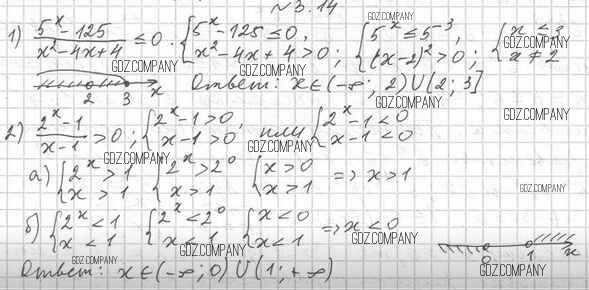 №3.14
1) (5^x - 125)/(x² - 4x + 4) ≤ 0. {5^x - 125 ≤ 0, x² - 4x + 4 > 0; {5^x ≤ 5^-3, (x-2)² > 0; {x ≤ 3 x ≠ 2
2 3 x Ответ: x ∈ (-∞; 2) ∪ (2; 3]
2) (2^x - 1)/(x - 1) > 0; {2^x - 1 > 0, x - 1 > 0 или {2^x - 1 < 0 x - 1 < 0
а) {2^x > 1 x > 1 {2^x > 2^0 x > 1 {x > 0 x > 1 => x > 1
б) {2^x < 1 x < 1 {2^x < 2^0 x < 1 {x < 0 x < 1 => x < 0
0 1 x
Ответ: x ∈ (-∞; 0) ∪ (1; +∞)
GDZ.COMPANY
GDZ.COMPANY
GDZ.COMPANY
GDZ.COMPANY
GDZ.COMPANY
GDZ.COMPANY
GDZ.COMPANY
GDZ.COMPANY
GDZ.COMPANY
GDZ.COMPANY
GDZ.COMPANY
GDZ.COMPANY
GDZ.COMPANY
GDZ.COMPANY